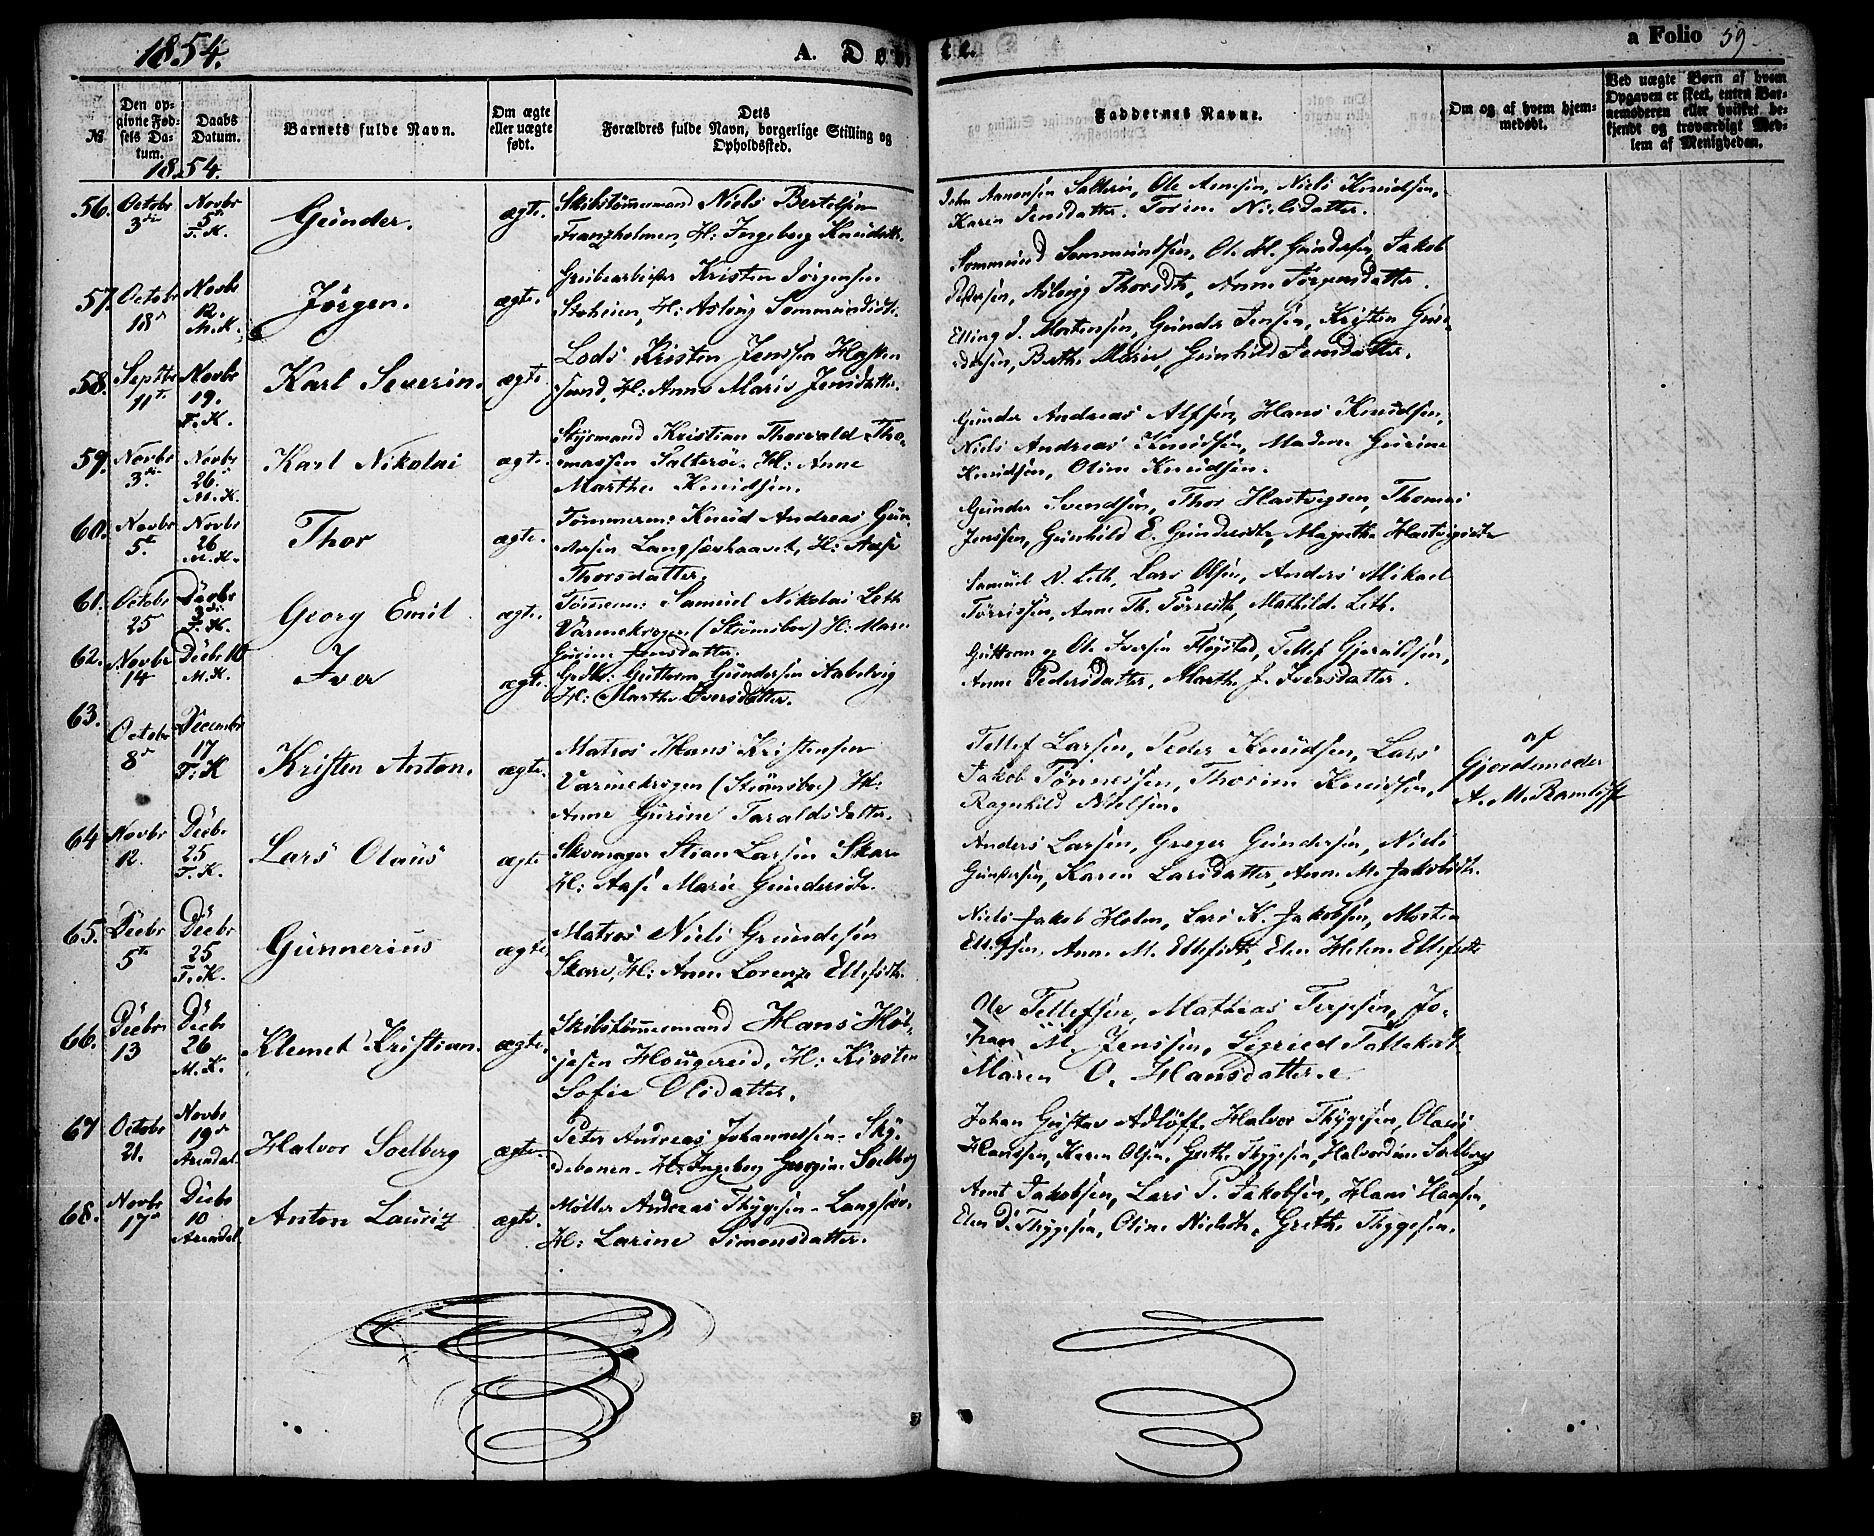 1854.
A. Døbte.
a Folio 59.
№
Den opgivne Fødsels Datum.
Daabs Datum.
Barnets fulde Navn.
Om ægte eller uægte født.
Dets Forældres fulde Navn, borgerlige Stilling og Opholdssted.
Faddernes Navne.
Om og af hvem hjemmedøbt.
Ved uægte Børn af hvem Opgaven er skeet, enten Barnemoderen eller hvilket bekjendt og troværdigt Medlem af Menigheden.
1854.
56. Octobr 3die Novbr 5te T. K. Gunder. ægte. Skibstømmermand Niels Bertelsen
Franzholmen, H: Ingeborg Knudsdtr.
John Aanonsen Salterøe, Ole Arnesen, Niels Knudsen,
Karen Jensdatter, Torine Nielsdatter.
57. Octobr 18de Novbr 12. M. K. Jørgen. ægte. Grubearbeider Kristen Jørgensen
Stoheien, H: Aslaug Sommundsdtr.
Sommund Sommundsen, Ole H. Gundersen, Jakob
Pedersen, Aslaug Thorsdtr, Anne Jørgensdatter.
58. Septbr 11te Novbr 19. T. K. Karl Severin. ægte. Lods Kristen Jenssen Hasken
sund, H: Anne Marie Jensdatter.
Elling J. Mortensen, Gunder Jensen, Kristen Gun-
dersen, Berthe Marie, Gunhild Jensdatter.
59. Novbr 3die Novbr 26. M. K. Karl Nikolai ægte. Styrmand Kristian Thorvald Tho-
massen Salterøe. H: Anne
Marthe Knudsen.
Gunder Andreas Alfsen, Hans Knudsen,
Niels Andreas Knudsen, Madame Gurine
Knudsen, Oline Knudsen.
60. Novbr 5te Novbr 26 M. K. Thor ægte. Tømmerm: Knud Andreas Gun-
dersen Langsævhaavet, H: Aase
Thorsdatter.
Gunder Svendsen, Thor Hartvigsen, Thomas
Jenssen, Gunhild E. Gundersdtr, Magrethe Hartvigsdtr
61. Octobr 25 Decbr 3die T. K. Georg Emil ægte. Tømrerm: Samuel Nikolai Leth
Varmekrogen (Strømsboe) H: Maren
Gurine Jensdatter.
Samuel N. Leth, Lars Olsen, Anders Mikael
Tørrissen, Anne Th. Tørresdtr, Mathilde Leth.
62. Novbr 14 Decbr 10 M. K. Iver ægte. Grdb: Guttorm Gundersen Aabelvig
H: Marthe Iversdatter.
Guttorm og Ole Iversen Fløystad, Tellef Gjeruldsen,
Anne Pedersdatter, Marthe J. Iversdatter.
63. Octobr 8de Decembr 17 T. K Kristen Anton. ægte. Matros Hans Kristensen
Varmekrogen (Strømsboe) H:
Anne Gurine Taraldsdatter.
Tellef Larsen, Peder Knudsen, Lars
Jakob Tønnessen, Thorine Knudsen,
Ragnhild Nielsen.
af
Gjordemoder
A. M.
64 Novbr 12. Decbr 25 T. K. Lars Olaus ægte Skomager Stian Larsen Skare
H: Aase Marie Gundersdtr.
Anders Larsen, Greger Gundersen, Niels
Gundersen, Karen Larsdatter, Anne M. Jakobsdtr.
65. Decbr 5te Decbr 25 T. K. Gunnerius ægte. Matros Niels Gundesen
Skare, H: Anne Lorenze Ellefsdtr.
Niels Jakob Holm, Lars K. Jakobsen, Morten
Ellefsen, Anne M. Ellefsdtr, Elen Helene Ellefsdtr
66. Decbr 13 Decbr 26 M. K. Klemet Kristian. ægte. Skibstømmermand Hans
Hougereid, H: Kirsten
Sofie Olsdatter.
Ole Tellefsen, Mathias Terjesen, Jo-
han M. Jenssen, Sigried
Maren O. Hansdatter.
67 Octobr 21. Novbr 19de Arendal. Halvor Soelberg ægte. Peter Andreas Johannessen - Sky-
debanen - H: Ingeborg Gurgine Soelberg
Johan Gustav Adloff, Halvor Thygesen, Olaus
Hanssen, Karen Olsen, Grethe Thygesen, Halvordine Soelberg
68. Novbr 17de Decbr 10 Arendal Anton Lauriz ægte. Møller Andreas Thygesen - Langsæv,
H: Larine Simonsdatter.
Arnt Jakobsen, Lars P. Jakobsen, Hans Hansen,
Elen D. Thygesen, Oline Nielsdtr, Grethe Thygesen.